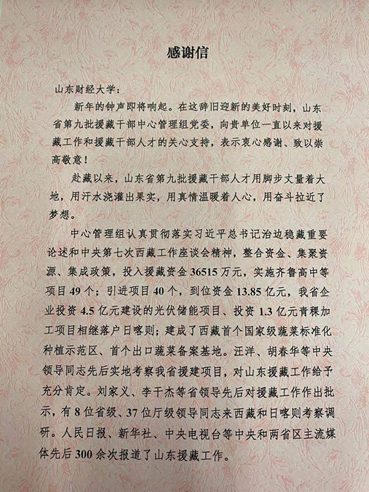 感谢信
山东财经大学：
新年的钟声即将响起。在这辞旧迎新的美好时刻，山东
省第九批援藏干部中心管理组党委，向贵单位一直以来对援
藏工作和援藏干部人才的关心支持，表示衷心感谢、致以崇
高敬意！
赴藏以来，山东省第九批援藏干部人才用脚步丈量着大
地，用汗水浇灌出果实，用真情温暖着人心，用奋斗拉近了
梦想。
中心管理组认真贯彻落实习近平总书记治边稳藏重要
论述和中央第七次西藏工作座谈会精神，整合资金、集聚资
源、集成政策，投入援藏资金 36515 万元，实施齐鲁高中等
项目 49 个；引进项目 40 个，到位资金 13.85 亿元，我省企
业投资 4.5 亿元建设的光伏储能项目、投资 1.3 亿元青稞加
工项目相继落户日喀则；建成了西藏首个国家级蔬菜标准化
种植示范区、首个出口蔬菜备案基地。汪洋、胡春华等中央
领导同志先后实地考察我省援建项目，对山东援藏工作给予
充分肯定。刘家义、李干杰等省领导先后对援藏工作作出批
示，有 8 位省级、37 位厅级领导同志来西藏和日喀则考察调
研。人民日报、新华社、中央电视台等中央和两省区主流媒
体先后 300 余次报道了山东援藏工作。